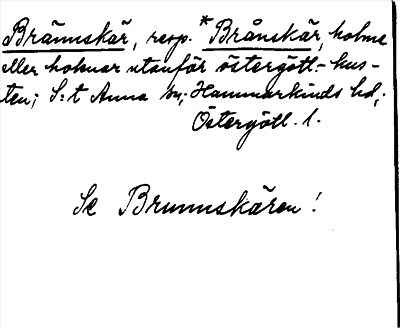 Brännskär, resp. *Brånskär, holme
eller holmar utanför östergötl.-kus-
ten; S:t Anna sn; Hammarkinds hd,;
Östergötl. l.
Se Brunnskären!